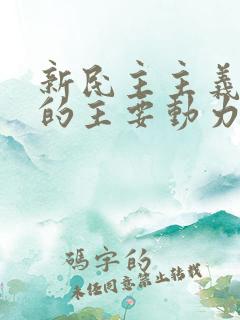 新民主主義
的主要動力
碼字的
未經同意禁止轉載